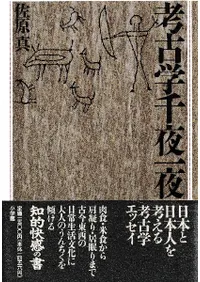 考古学千夜一夜
佐原真
日本と
日本人を
考える
考古学
エッセイ
肉食・米食から
肩凝り・居眠りまで
古今東西の
日常生活文化に
大人のうんちくを
傾ける
知的快感の書
小学館